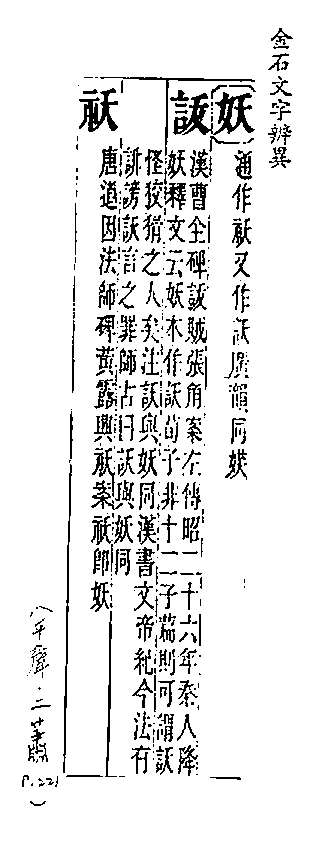 金石文字辨異
妖
通作祅又作訞廣韻同
訞
漢曹全碑訞賊張角案左傳昭二十六年秦人降
妖釋文云妖本作訞荀子非十二子篇則可謂訞
怪狡猾之人矣注訞與妖同漢書文帝紀今法有
誹謗訞言之罪師古曰訞與妖同
祅
唐道因法師碑黃露興祅案祅即妖
(平聲·二蕭 P.221)